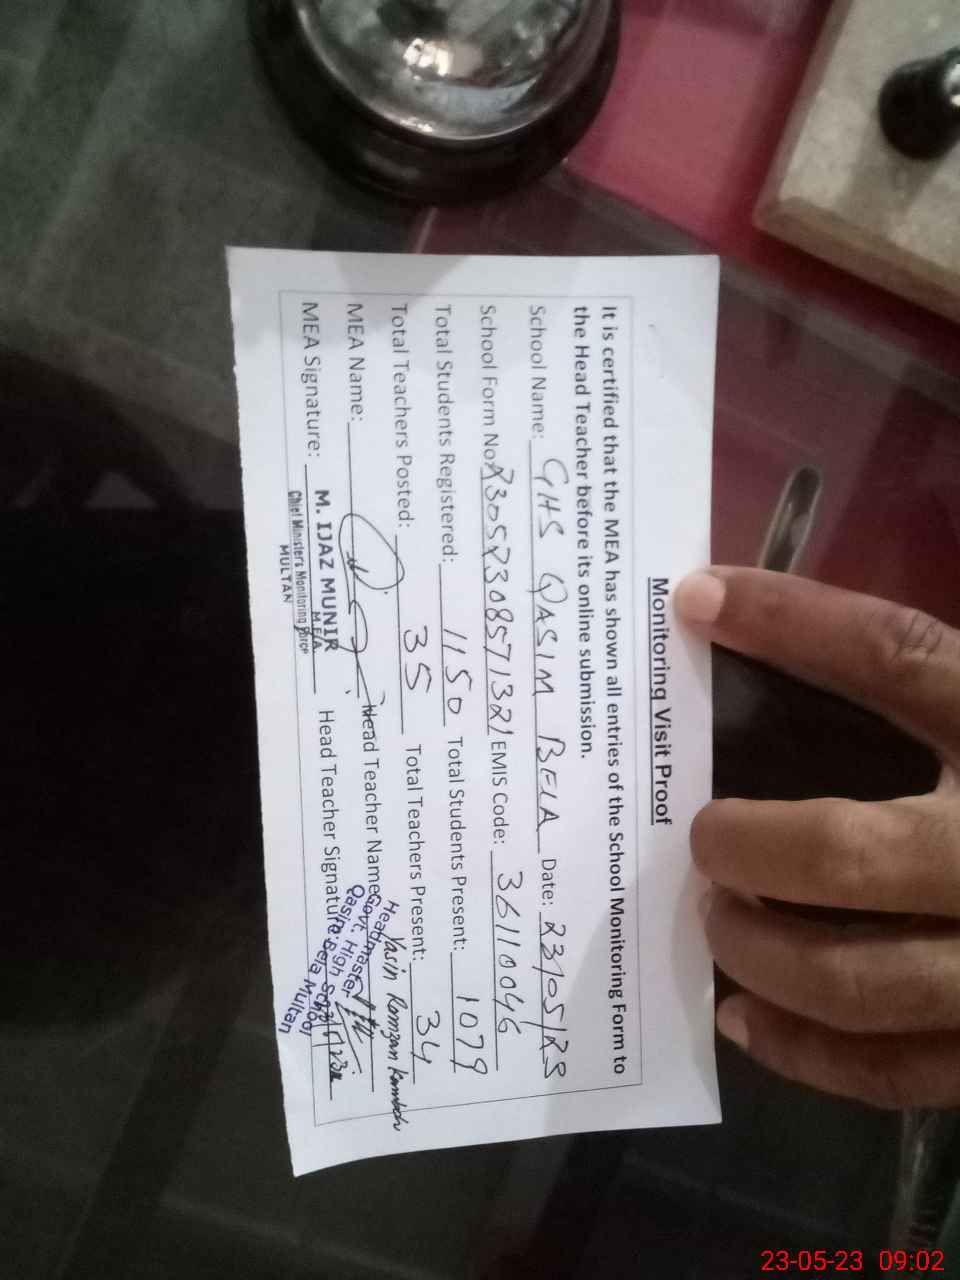 Monitoring Visit Proof
It is certified that the MEA has shown all entries of the School Monitoring Form to
the Head Teacher before its online submission.
School Name: GHS QASIM BELA Date: 23/05/23
School Form No: EMIS Code: 36110046
Total Students Registered: 1150 Total Students Present: 1079
Total Teachers Posted: 35 Total Teachers Present: 34
MEA Name: Head Teacher Name: Yasin Ramzan
MEA Signature: Head Teacher Signature:
M. IJAZ MUNIR
M.E.A
Chief Minister's Monitoring Force
MULTAN
Headmaster
Govt. High School
Qasim Bela Multan
23-05-23 09:02